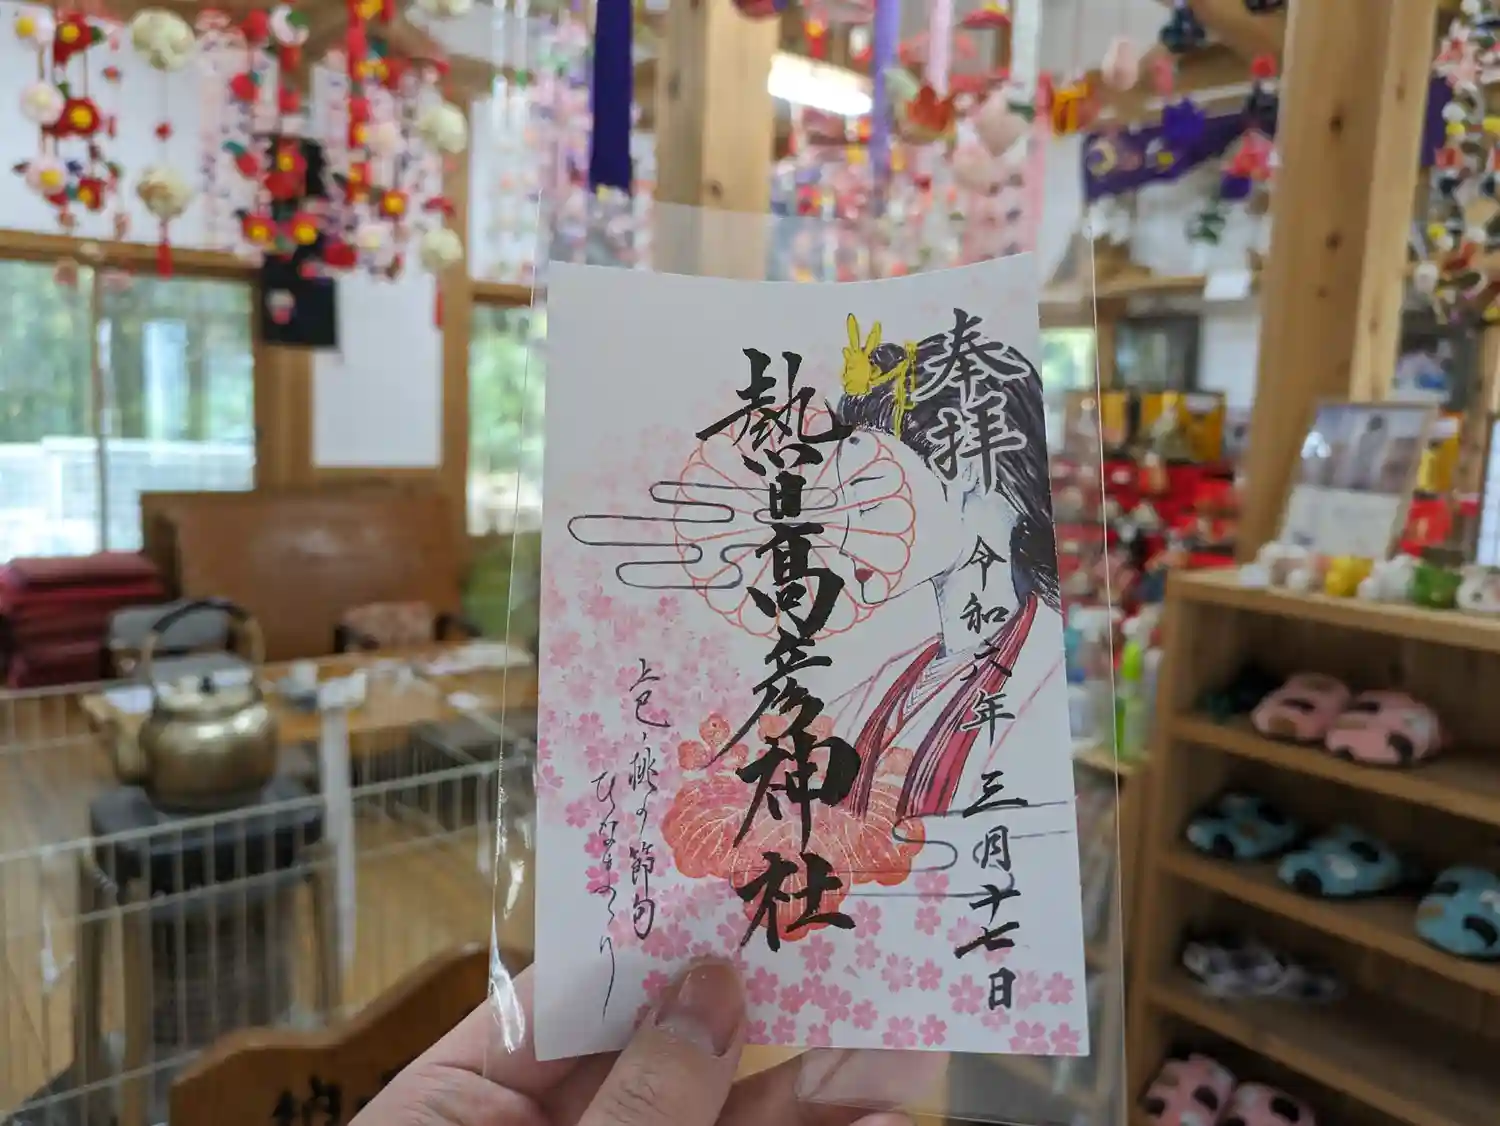 奉拝
令和六年 三月十七日
熱日高彦神社
上巳、桃の節句
ひなまつり